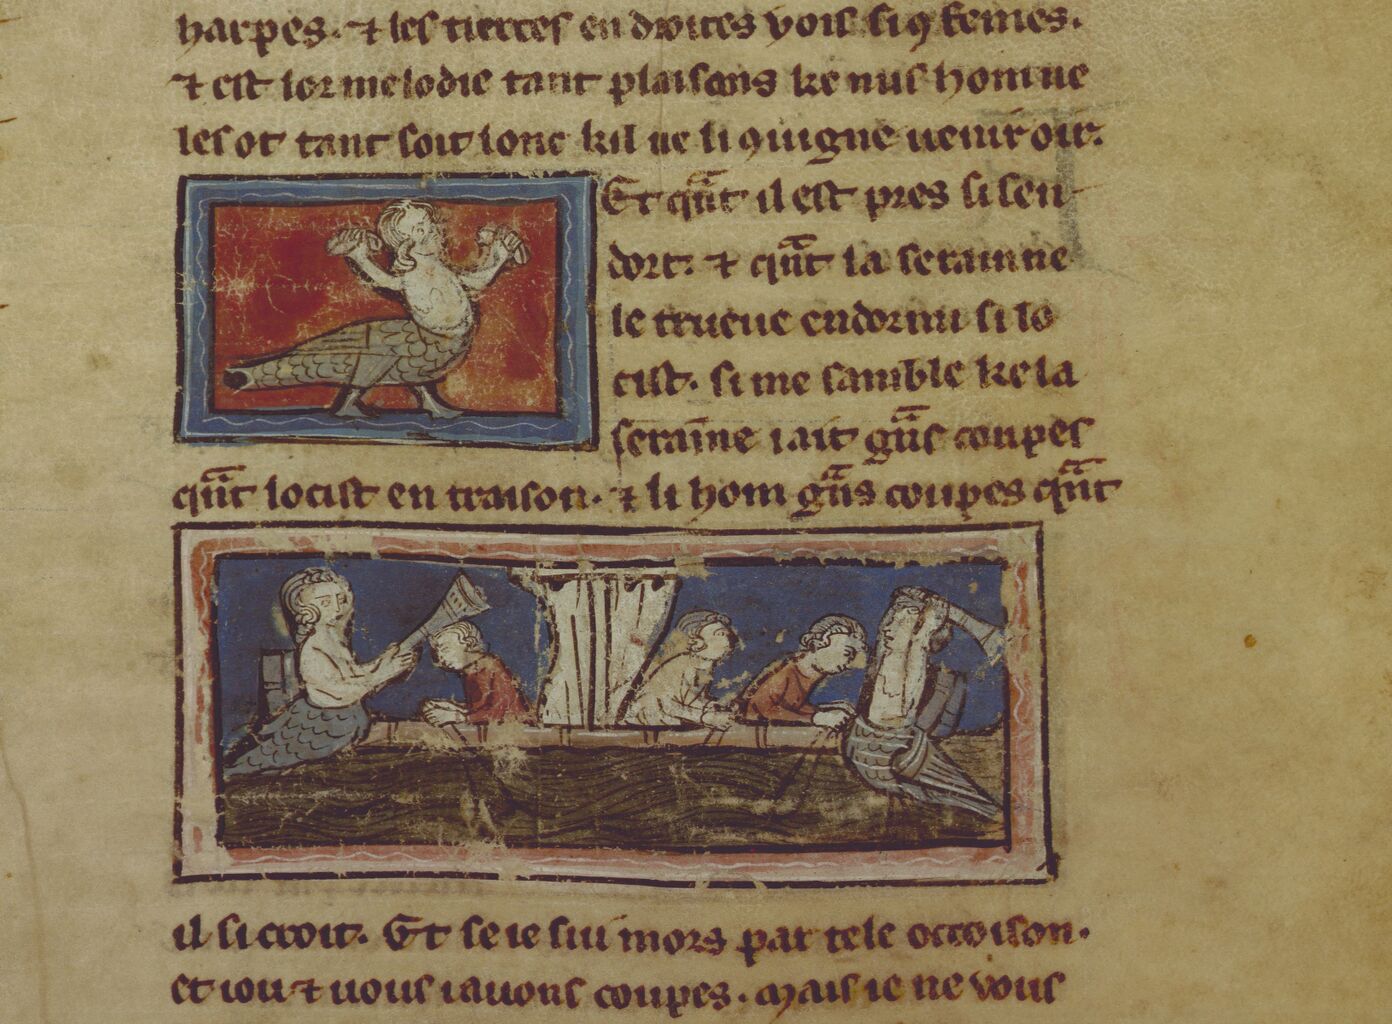 harpes. ⁊ les tierces en droites vois si ꝯ femes.
⁊ est lor melodie tant plaisans ke nus hom ne
les ot tant soit lonc kil ne li ꝯuigne uenir oir.
Et qⁿt il est pres si sen
dort. ⁊ qⁿt la seraine
le trueue endormi si lo
cist. si me samble ke la
seraine i ait gⁿs coupes
qⁿt locist en traison. ⁊ li hom gⁿs coupes qⁿt
il si croit. Et se ie sui mors par tele occoison.
et iou ⁊ uous i auons coupes. mais ie ne vous